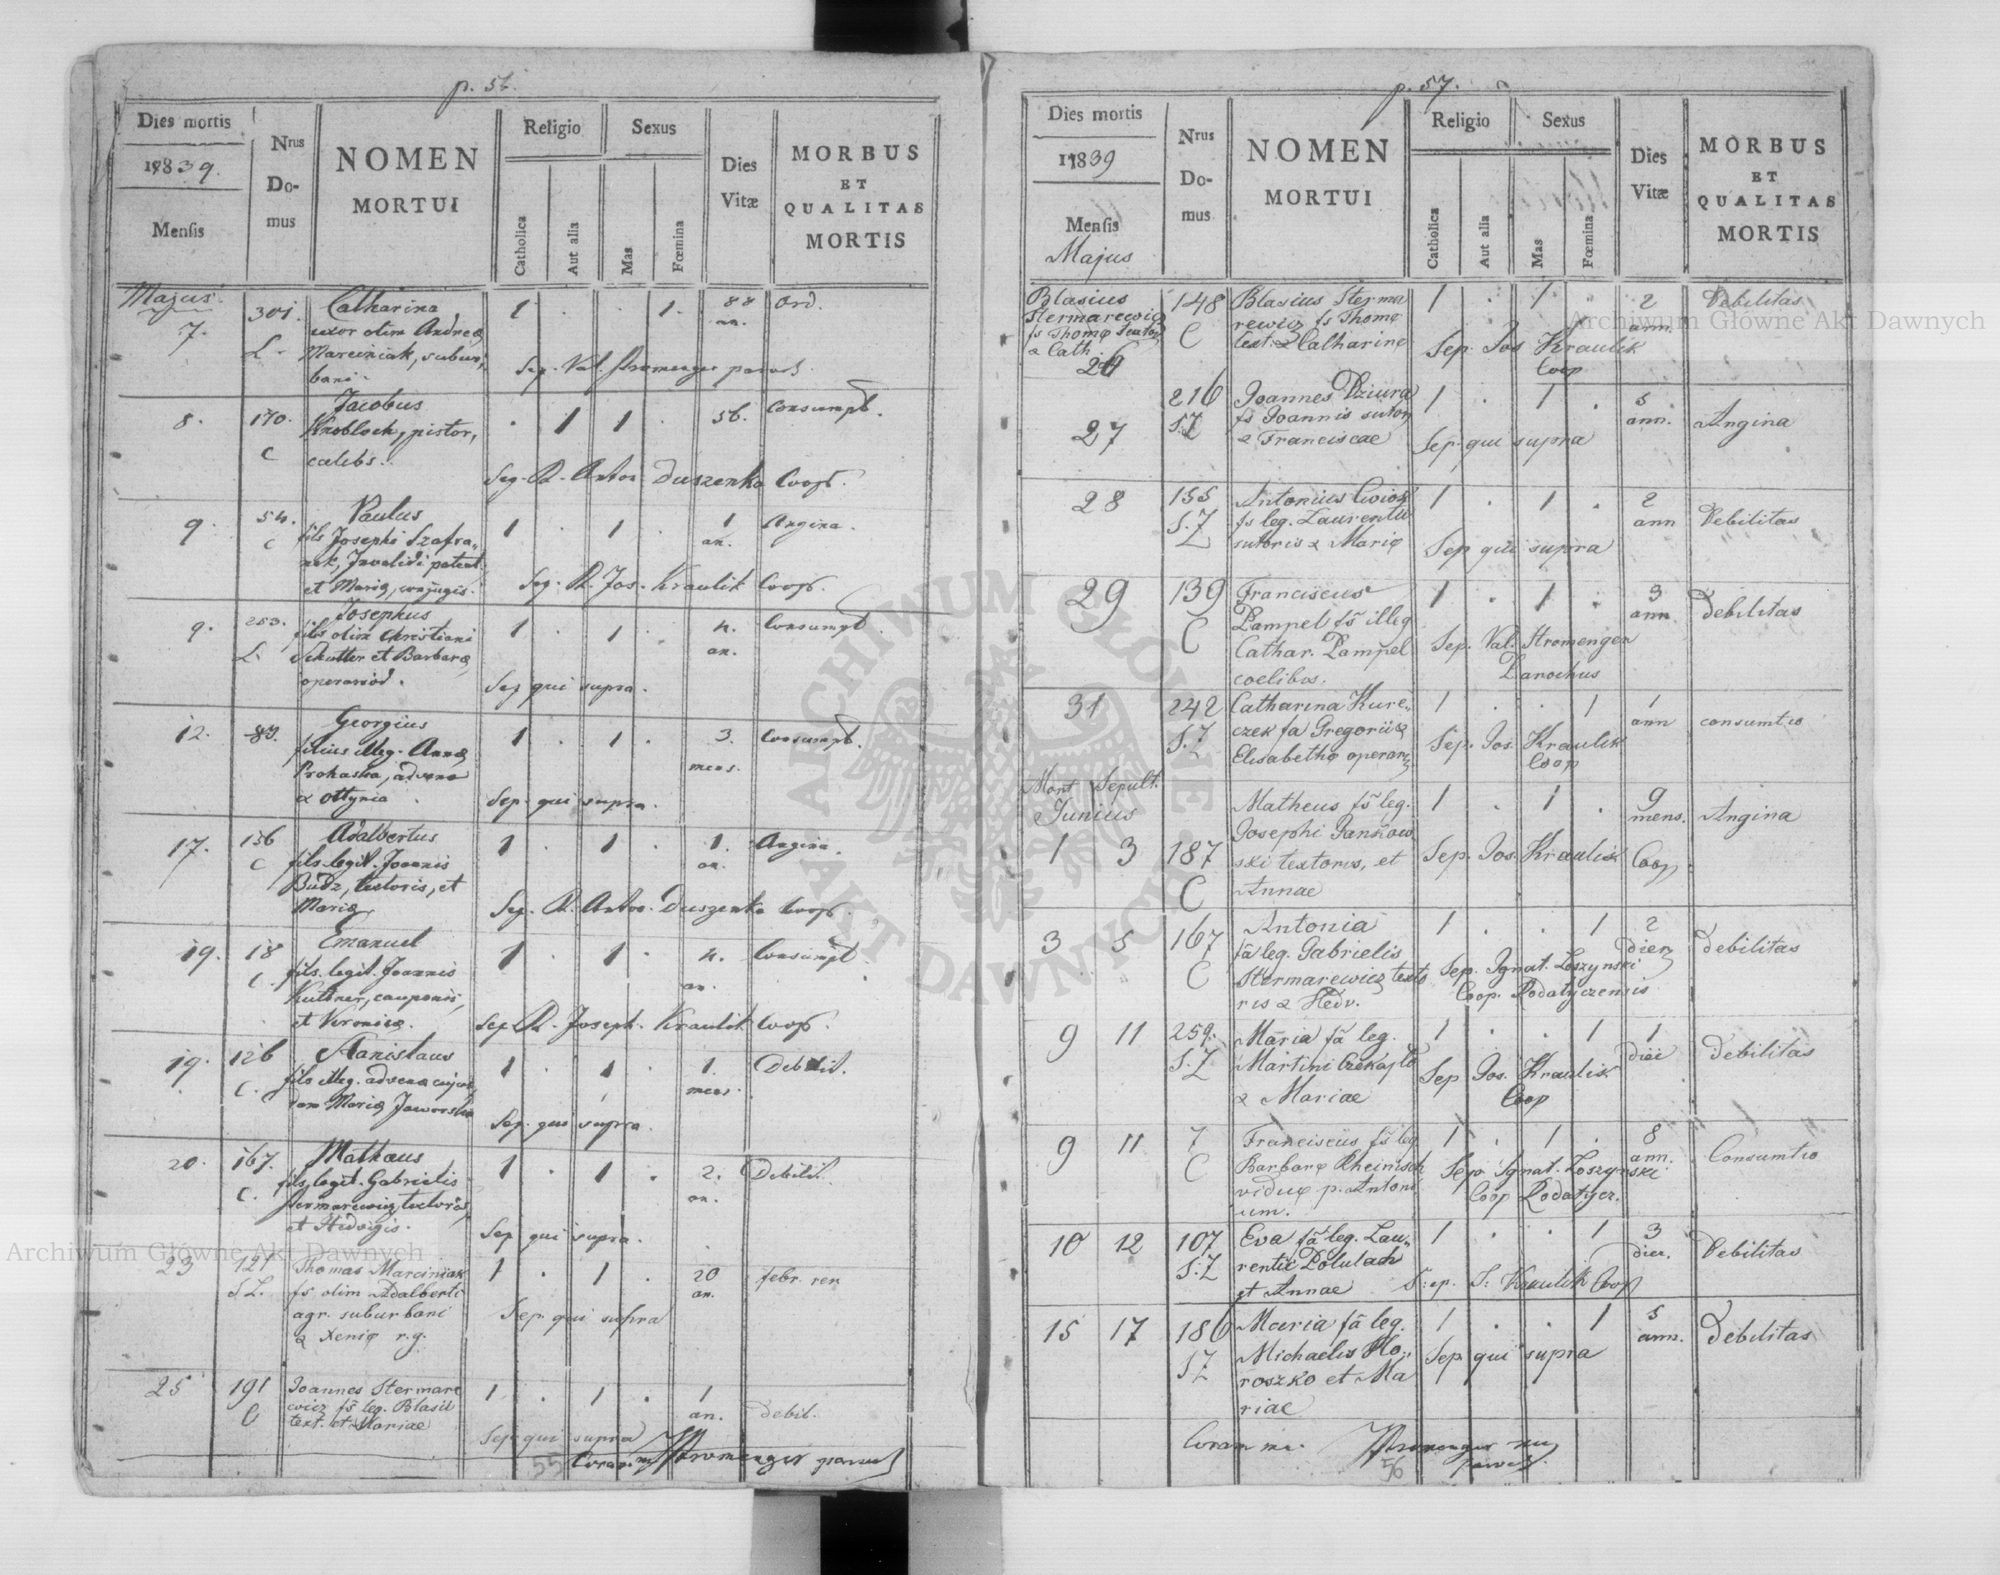 p. 56.
Dies mortis
1839.
Mensis
Nrus
Do-
mus
NOMEN
MORTUI
Religio
Sexus
Catholica
Aut alia
Mas
Fœmina
Dies
Vitæ
MORBUS
ET
QUALITAS
MORTIS
Majus
7.
301.
L.
Catharina
uxor olim Andreæ
Marciniak, subur,
bani
1 . . 1.
88
an.
Ord.
Sep. Val. Stromenger paroch.
8.
170.
C
Jacobus
Knobloch, pistor,
cælebs.
. 1 1 .
56.
Consumpt.
Sep. R. Anton Duszenko Coop.
9.
54.
C
Paulus
fils Josephi Szafra,,
nek, Invalidi patent.
et Mariæ, conjugis.
1 . 1 .
1
an.
Angina.
Sep. R. Jos. Kraulik Coop.
9.
253.
L.
Josephus
fils olim Christiani
Schutter et Barbaræ
operariod.
1 . 1 .
4.
an.
Consumpt
Sep qui supra.
12.
83.
Georgius
filius illeg. Annæ
Prohaska, advena
a Ottynia
1 . 1 .
3.
mens.
Consumpt.
Sep. qui supra.
17.
156
C
Adalbertus
fils legit. Joannis
Budz, textoris, et
Mariæ
1 . 1 .
1.
an.
Angina.
Sep. R. Anton. Duszenko Coop.
19.
18
C.
Emanuel
fils. legit. Joannis
Kuttner, cauponis,
et Veronicæ.
1 . 1 .
4.
an.
Consumpt
Sep R. Joseph. Kraulik Coop.
19.
126
C.
Stanislaus
fils illeg. advenæ cujus,
dam Mariæ Jaworska
1 . 1 .
1.
mens.
Debilit.
Sep. qui supra.
20.
167.
C.
Mathæus
fils, legit. Gabrielis
Stermarewicz, textoris,
et Hedvigis.
1 . 1 .
2.
an.
Debilit.
Sep qui supra.
23
121
S Z.
Thomas Marciniak
fs olim Adalberti
agr. suburbani
& Xeniæ r. g.
1 . 1 .
20
an.
febr. ren
Sep. qui supra
25
191
C
Joannes Stermare
wicz fs leg. Blasii
text. et Mariae
1 . 1 .
1
an.
debil.
Sep qui supra
Coram me Stromenger paroch
55
p. 57.
Dies mortis
1839
Mensis
Majus
Nrus
Do-
mus
NOMEN
MORTUI
Religio
Sexus
Catholica
Aut alia
Mas
Fœmina
Dies
Vitæ
MORBUS
ET
QUALITAS
MORTIS
Blasius
Stermarewicz
fs Thomæ textor
& Cath.
26
148
C
Blasius Sterma
rewicz fs Thomæ
text. & Catharinæ
1 . 1 .
2
ann.
Debilitas
Sep. Jos Kraulik
Coop
27
216
S.Z
Joannes Dziura
fs Joannis sutor,
& Franciscae
1 . 1 .
5
ann.
Angina
Sep. qui supra
28
155
S.Z
Antonius
fs leg. Laurentii
sutoris & Mariæ
1 . 1 .
2
ann
Debilitas
Sep qui supra
29
139
C
Franciscus
Pampel fs illeg
Cathar. Pampel
coelibis.
1 . 1 .
3
ann
Debilitas
Sep. Val. Stromenger
Parochus
31
242
S.Z
Catharina Kure,,
czek fa Gregorii &
Elisabethæ operar,
1 . . 1
1
ann
consumtio
Sep. Jos. Kraulik
Coop
Mort Sepult.
Junius
1 3
187
C
Matheus fs leg.
Josephi Jankow
ski textoris, et
Annae
1 . 1 .
9
mens.
Angina
Sep. Jos. Kraulik Coop
3 5
167
C
Antonia
fa leg. Gabrielis
Stermarewicz texto
ris & Hedv.
1 . . 1
2
dier,
Debilitas
Sep. Ignat. Loszynski
Coop. Rodatyczensis
9 11
259.
S.Z
Maria fa leg.
Martini Czekajło
& Mariae
1 . . 1
1
diei
Debilitas
Sep Jos. Kraulik
Coop
9 11
7
C
Franciscus fs leg
Barbaræ Rheinisch
viduæ p. Antoni
um.
1 . 1 .
8
ann.
Consumtio
Sep. Ignat. Loszynski
Coop Rodatycz.
10 12
107
S.Z
Eva fa leg. Lau,,
rentii Polulach
et Annae
1 . . 1
3
dier.
Debilitas
S:ep. J: Kraulik Coop
15 17
186
SZ
Maria fa leg.
Michaelis Ho,,
roszko et Ma
riae
1 . . 1
5
ann.
Debilitas
Sep qui supra
Coram me. Stromenger
paroch.
56
Archiwum Główne Akt Dawnych
Archiwum Główne Akt Dawnych
ARCHIWUM GŁÓWNE
AKT DAWNYCH